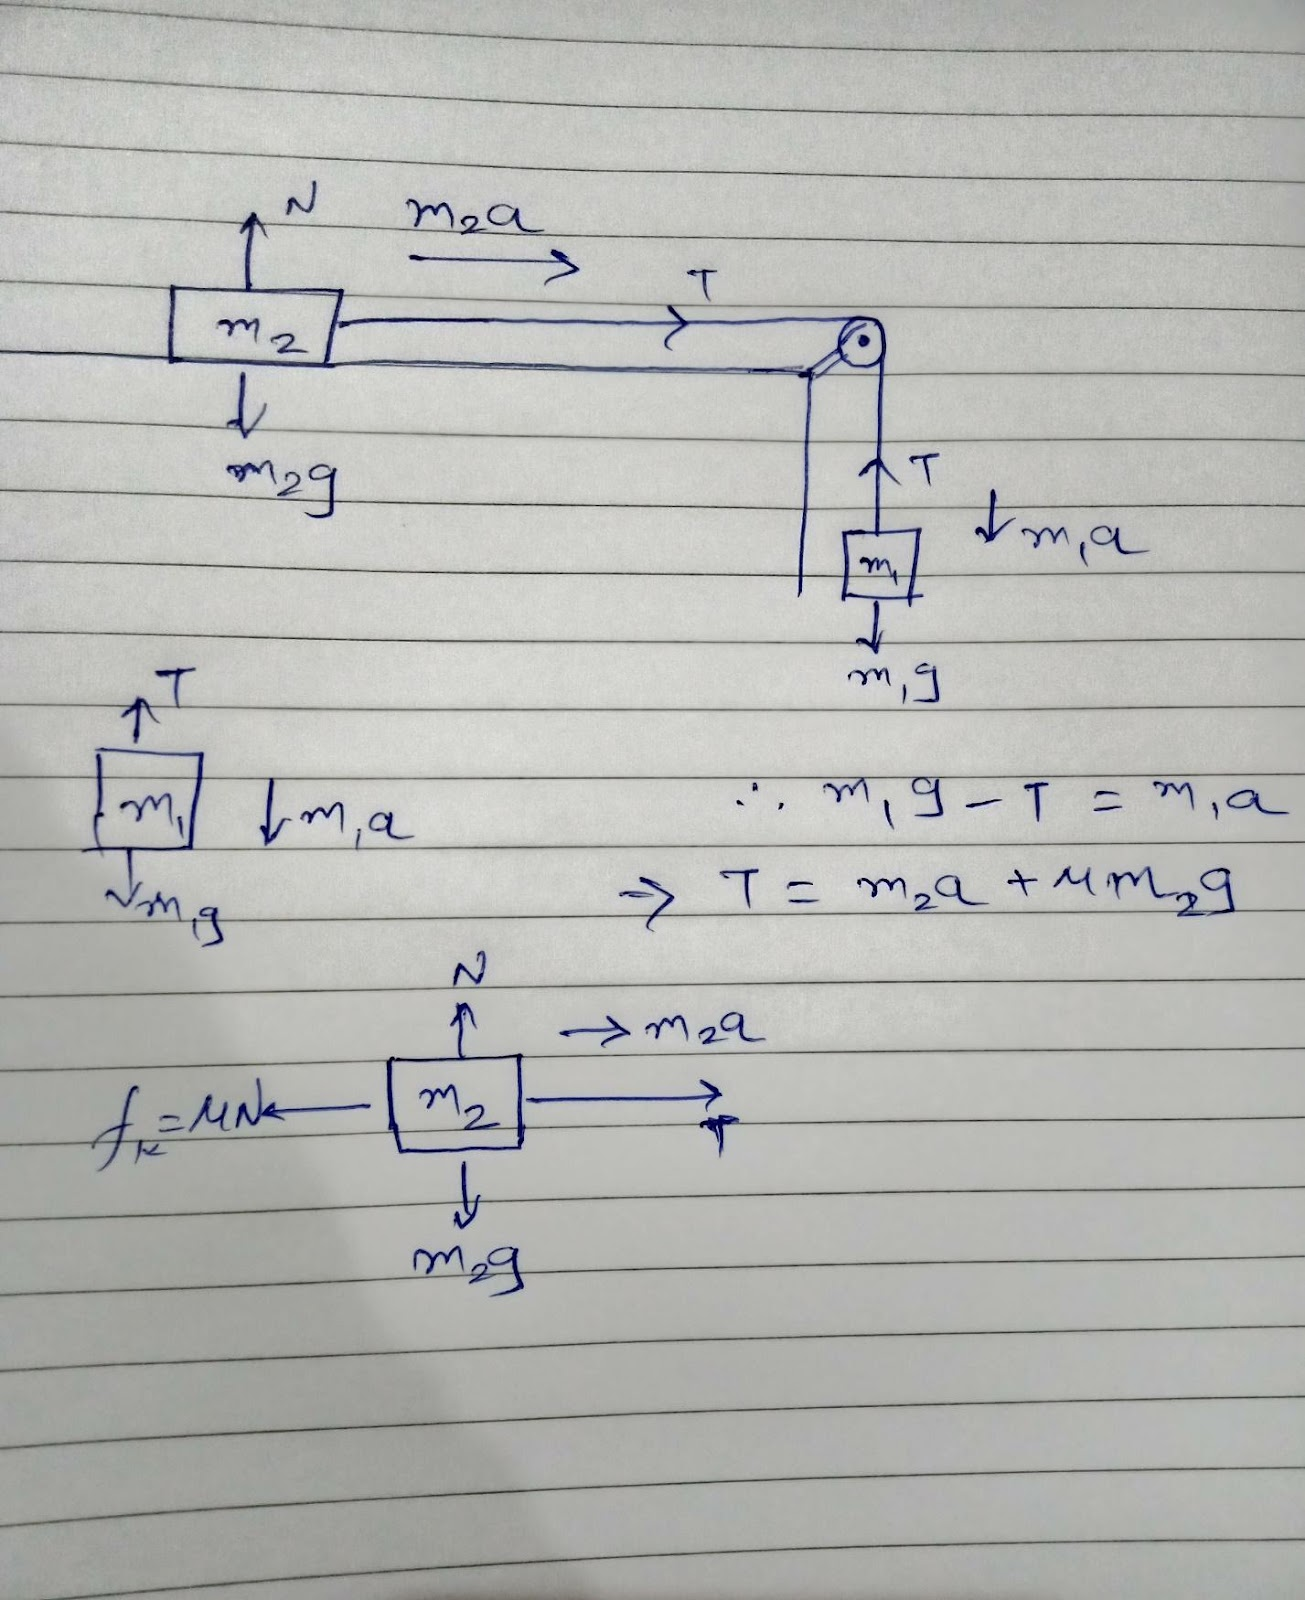 N m₂a
T
m₂
m₂g
T
m₁a
m₁
m₁g
T
m₁ m₁a
m₁g
∴ m₁g - T = m₁a
⇒ T = m₂a + μm₂g
N
→ m₂a
fₖ = μN m₂
T
m₂g